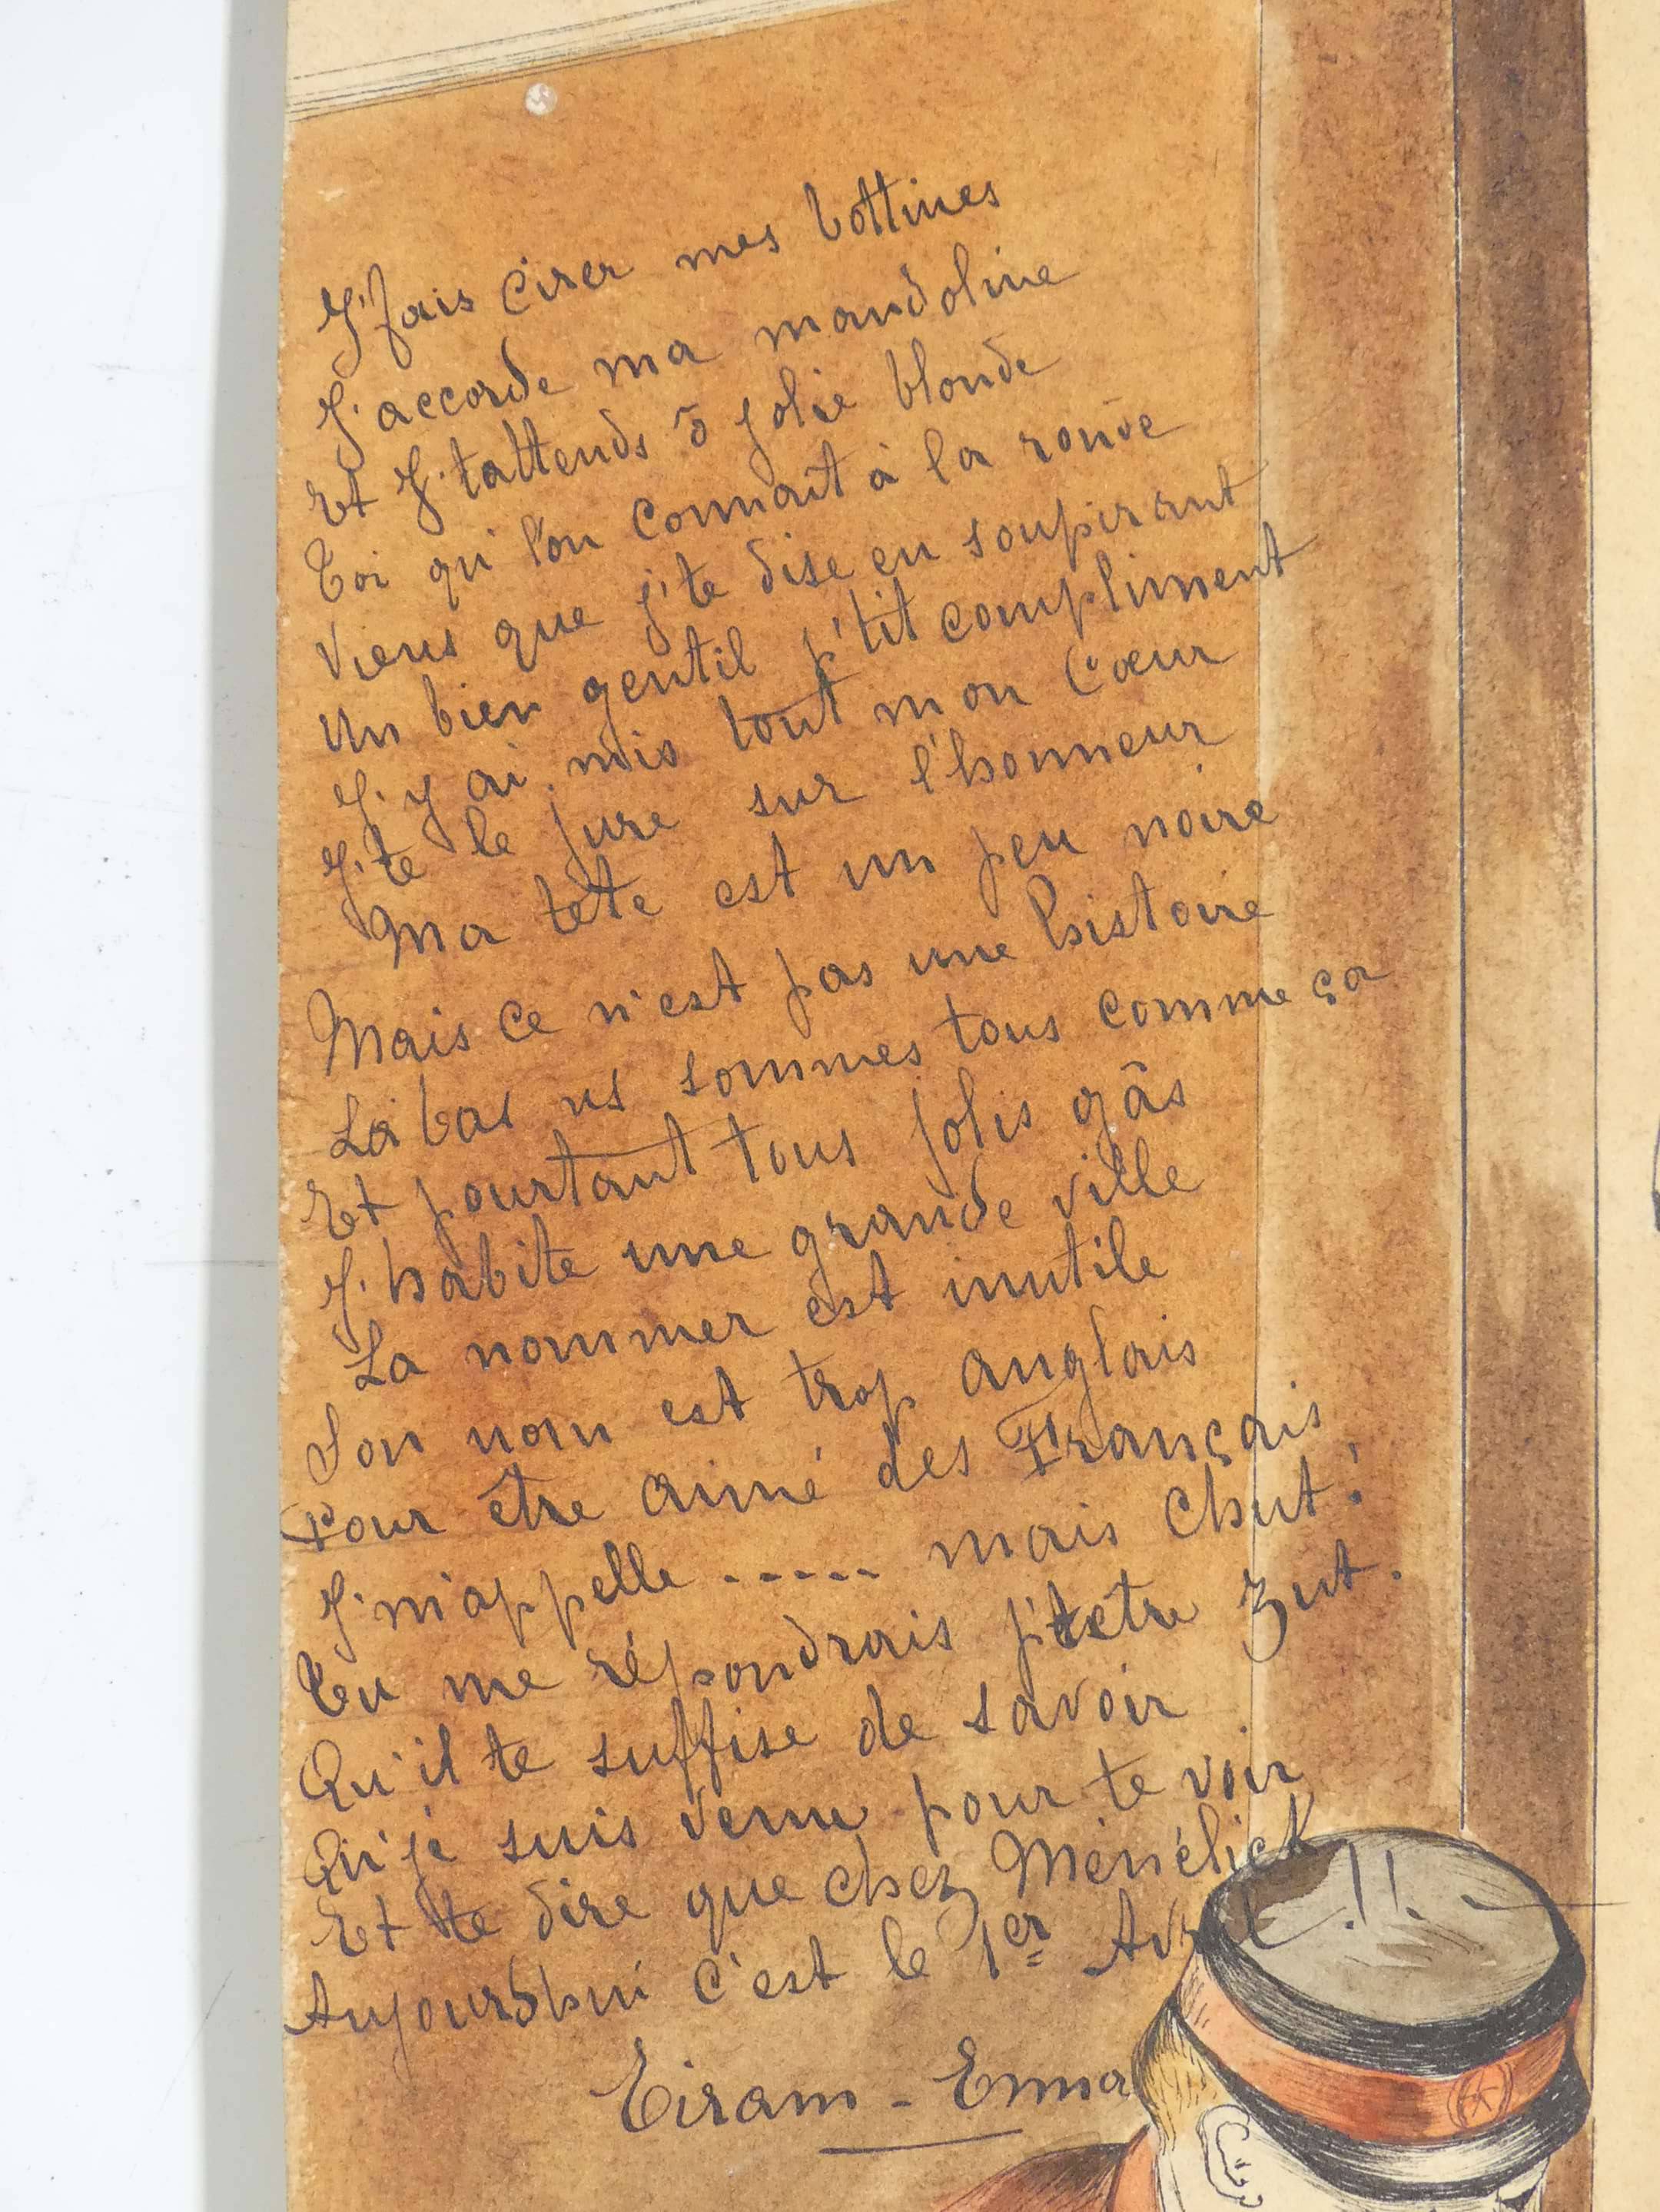 J'fais cirer mes bottines
J'accorde ma mandoline
Et J't'attends ô jolie blonde
Toi qui l'on connait à la ronde
Viens que j'te dise en soupirant
Un bien gentil p'tit compliment
J'y ai mis tout mon Cœur
J'te le jure sur l'honneur
Ma tête est un peu noire
Mais ce n'est pas une histoire
Là bas ns sommes tous comme ça
Et pourtant tous jolis gâs
J'habite une grande ville
La nommer est inutile
Son nom est trop anglais
Pour être aimé des Français
J'm'appelle ..... mais Chut!
Tu me répondrais p'tetre Zut.
Qu'il te suffise de savoir
Qu'je suis venu pour te voir
Et te dire que chez Ménélick !!
Aujourdhui c'est le 1er Avril
Eiram - Enna